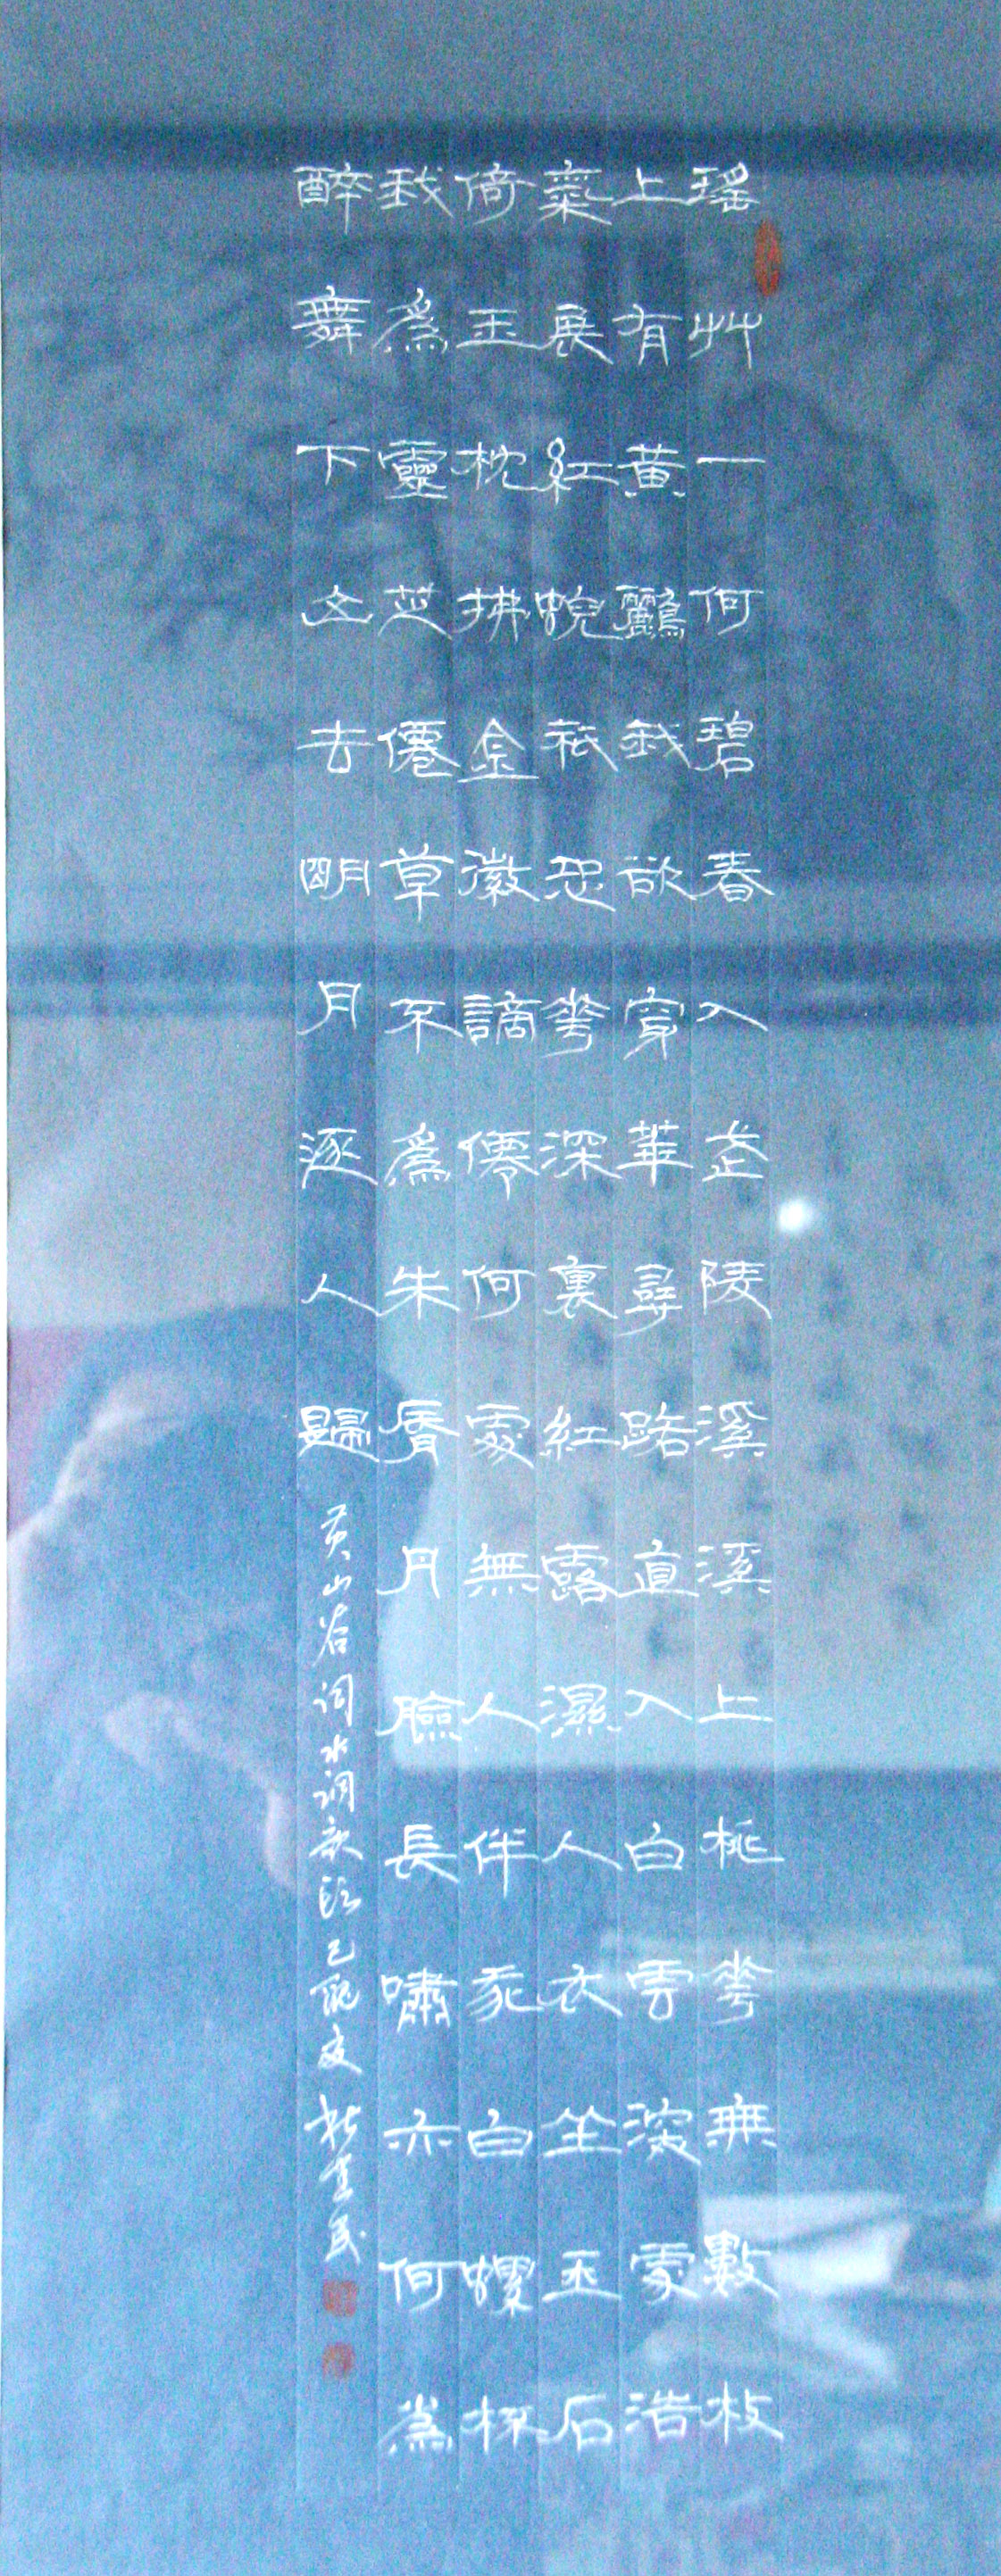 瑤艸一何碧春入武陵溪溪上桃花無數枝
上有黃鸝我欲穿華尋路直入白雲深處浩
氣展紅蜺祇恐花深裏紅露濕人衣坐玉石
倚玉枕拂金徽謫僊何處無人伴我白螺杯
我為靈芝僊草不為朱脣丹臉長嘯亦何為
醉舞下山去明月逐人歸
黃山谷詞水調歌頭